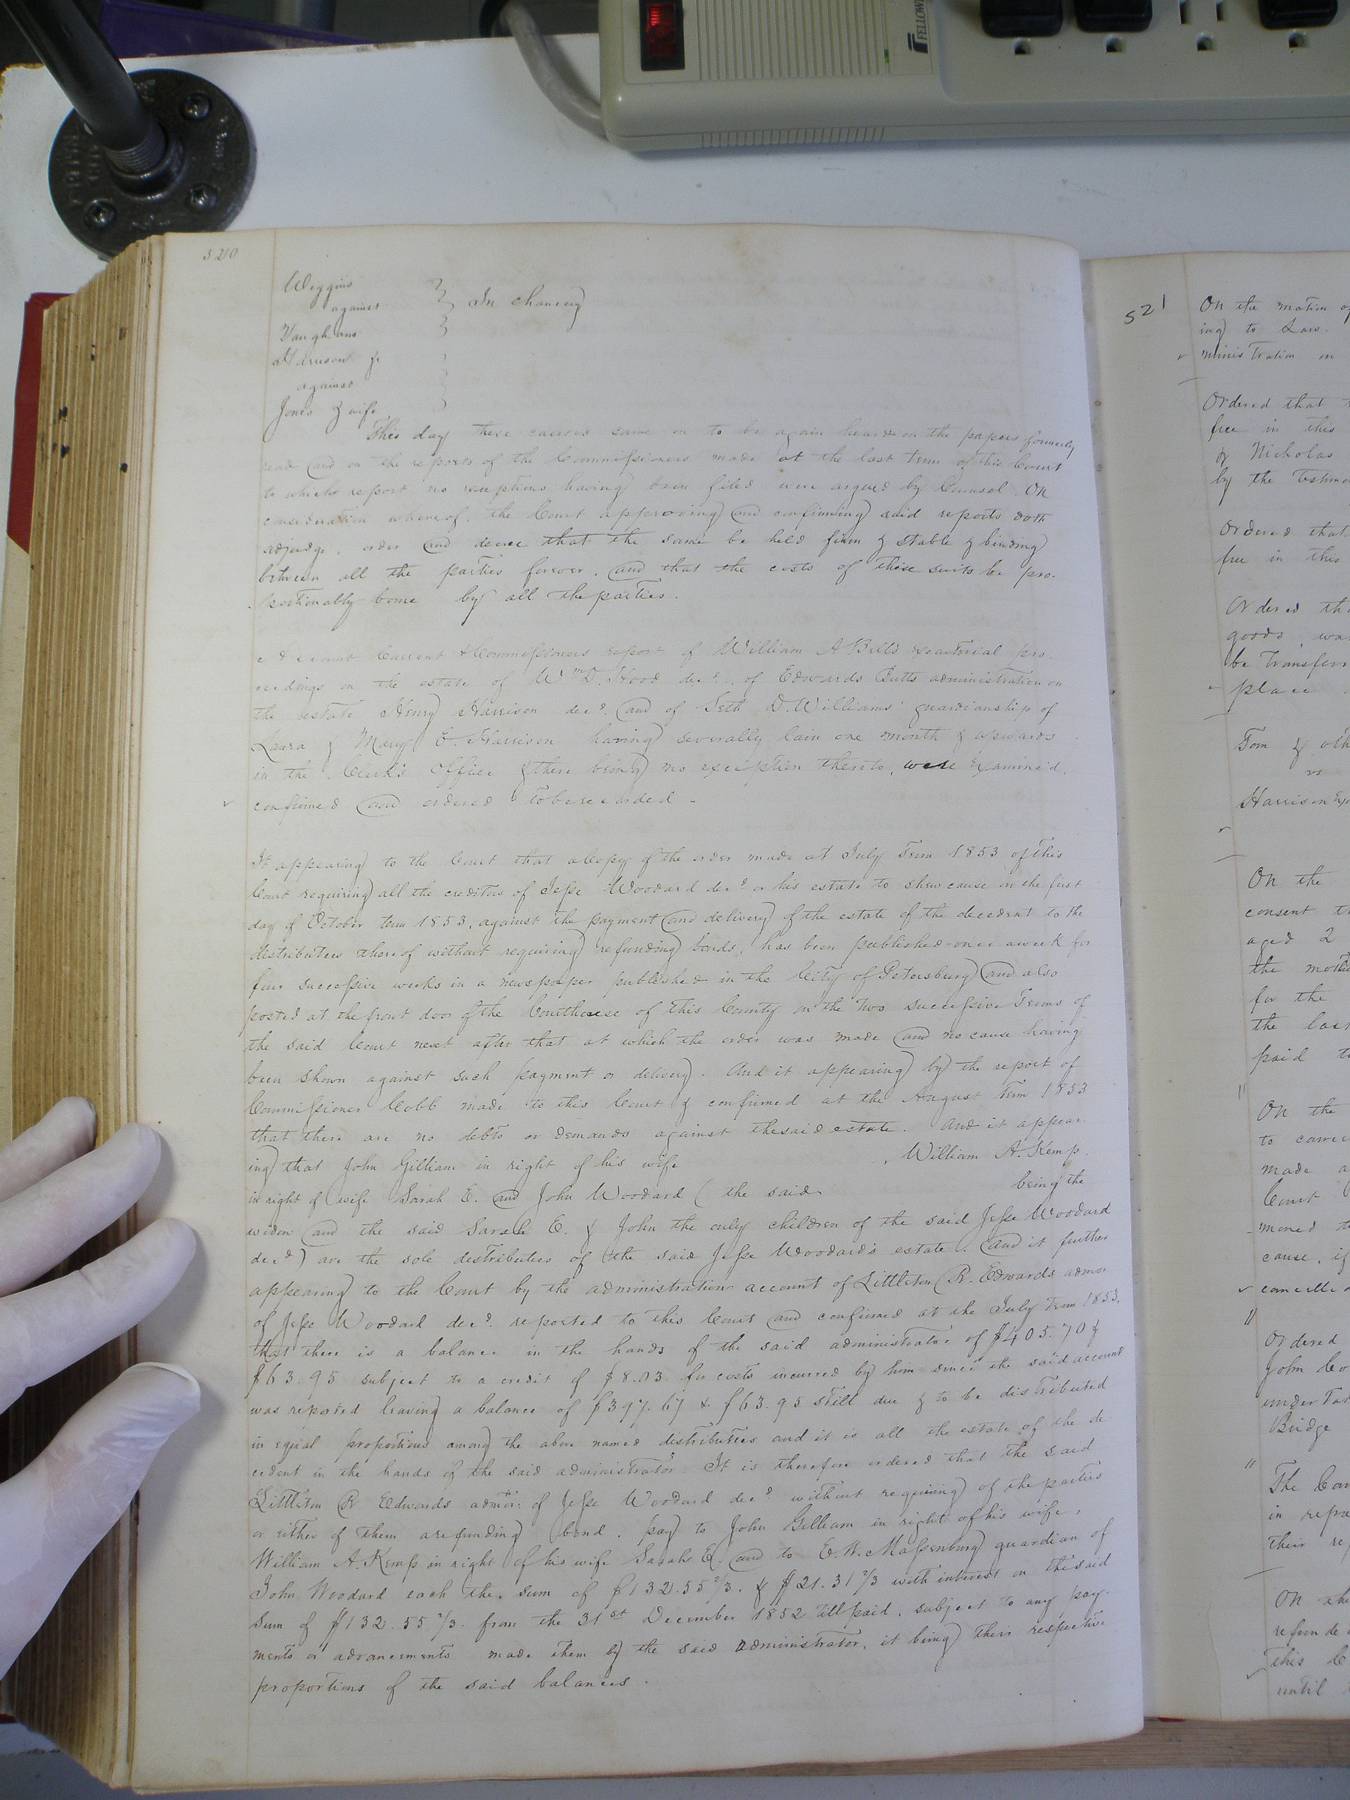 520
Wiggins
against } In chancery
Vaughans
Harrison &
against
Jones & wife
This day these causes came on to be again heard on the papers formerly
read and on the reports of the Commissioners made at the last term of this Court
to which report no exceptions having been filed were argued by Counsel On
consideration whereof, the Court approving and confirming said reports doth
adjudge, order and decree that the same be held firm & stable & binding
between all the parties forever, and that the costs of these suits be pro-
portionably borne by all the parties.
Account Current & Commissioners report of William A Bells executorial pro
ceedings on the estate of Wm D. Hood decd., of Edwards Butts administration on
the estate Henry Harrison decd. and of Seth D. Williams' guardianship of
Laura & Mary E. Harrison having severally lain one month & upwards
in the Clerk's Office & there being no exception thereto, were examined,
confirmed and ordered to be recorded -
It appearing to the Court that a Copy of the order made at July Term 1853 of this
Court requiring all the creditors of Jesse Woodard decd. or his estate to shew cause on the first
day of October term 1853, against the payment and delivery of the estate of the decedent to the
distributees thereof without requiring refunding bonds, has been published once a week for
four successive weeks in a newspaper published in the City of Petersburg and also
posted at the front door of the Courthouse of this County on the two successive Terms of
the said Court next after that at which the order was made and no cause having
been shown against such payment or delivery. And it appearing by the report of
Commissioner Cobb made to this Court & confirmed at the August Term 1853
that there are no debts or demands against the said estate. And it appear
ing that John Gilliam in right of his wife , William A. Kemp
in right of wife Sarah E. and John Woodard ( the said being the
widow and the said Sarah E. & John the only children of the said Jesse Woodard
decd) are the sole distributees of the said Jesse Woodard's estate. And it further
appearing to the Court by the administration account of Littleton R. Edwards admor
of Jesse Woodard decd. reported to this Court and confirmed at the July term 1853,
that there is a balance in the hands of the said administrator of $405.70 &
$63.95 subject to a credit of $8.03 for costs incurred by him since the said account
was reported leaving a balance of $397.67 & $63.95 still due & to be distributed
in equal proportions among the above named distributees and it is all the estate of the de
cedent in the hands of the said administrator It is therefore ordered that the said
Littleton R Edwards admor. of Jesse Woodard decd without requiring of the parties
or either of them a refunding bond, pay to John Gilliam in right of his wife,
William A. Kemp in right of his wife Sarah E. and to E. W. Massenburg guardian of
John Woodard each the sum of $132.55 2/3. & $21.31 2/3 with interest on the said
sum of $132.55 2/3. from the 31st December 1852 till paid, subject to any pay-
ments or advancements made them by the said administrator, it being their respective
proportions of the said balances.
521
On the motion of
ing to Law.
ministration on
Ordered that
free in this
of Nicholas
by the Testimo
Ordered that
free in this
Ordered tha
goods, wa
be transferr
place
Tom & oth
vs
Harrison Exr
On the
consent th
aged 2
the moth
for the
the last
paid to
On the
to carry
made a
Court
moned t
cause, if
cancelled
Ordered
John Co
undertak
Bridge
The Com
in repa
their re
On the
refunde
this C
until
FELLOWES